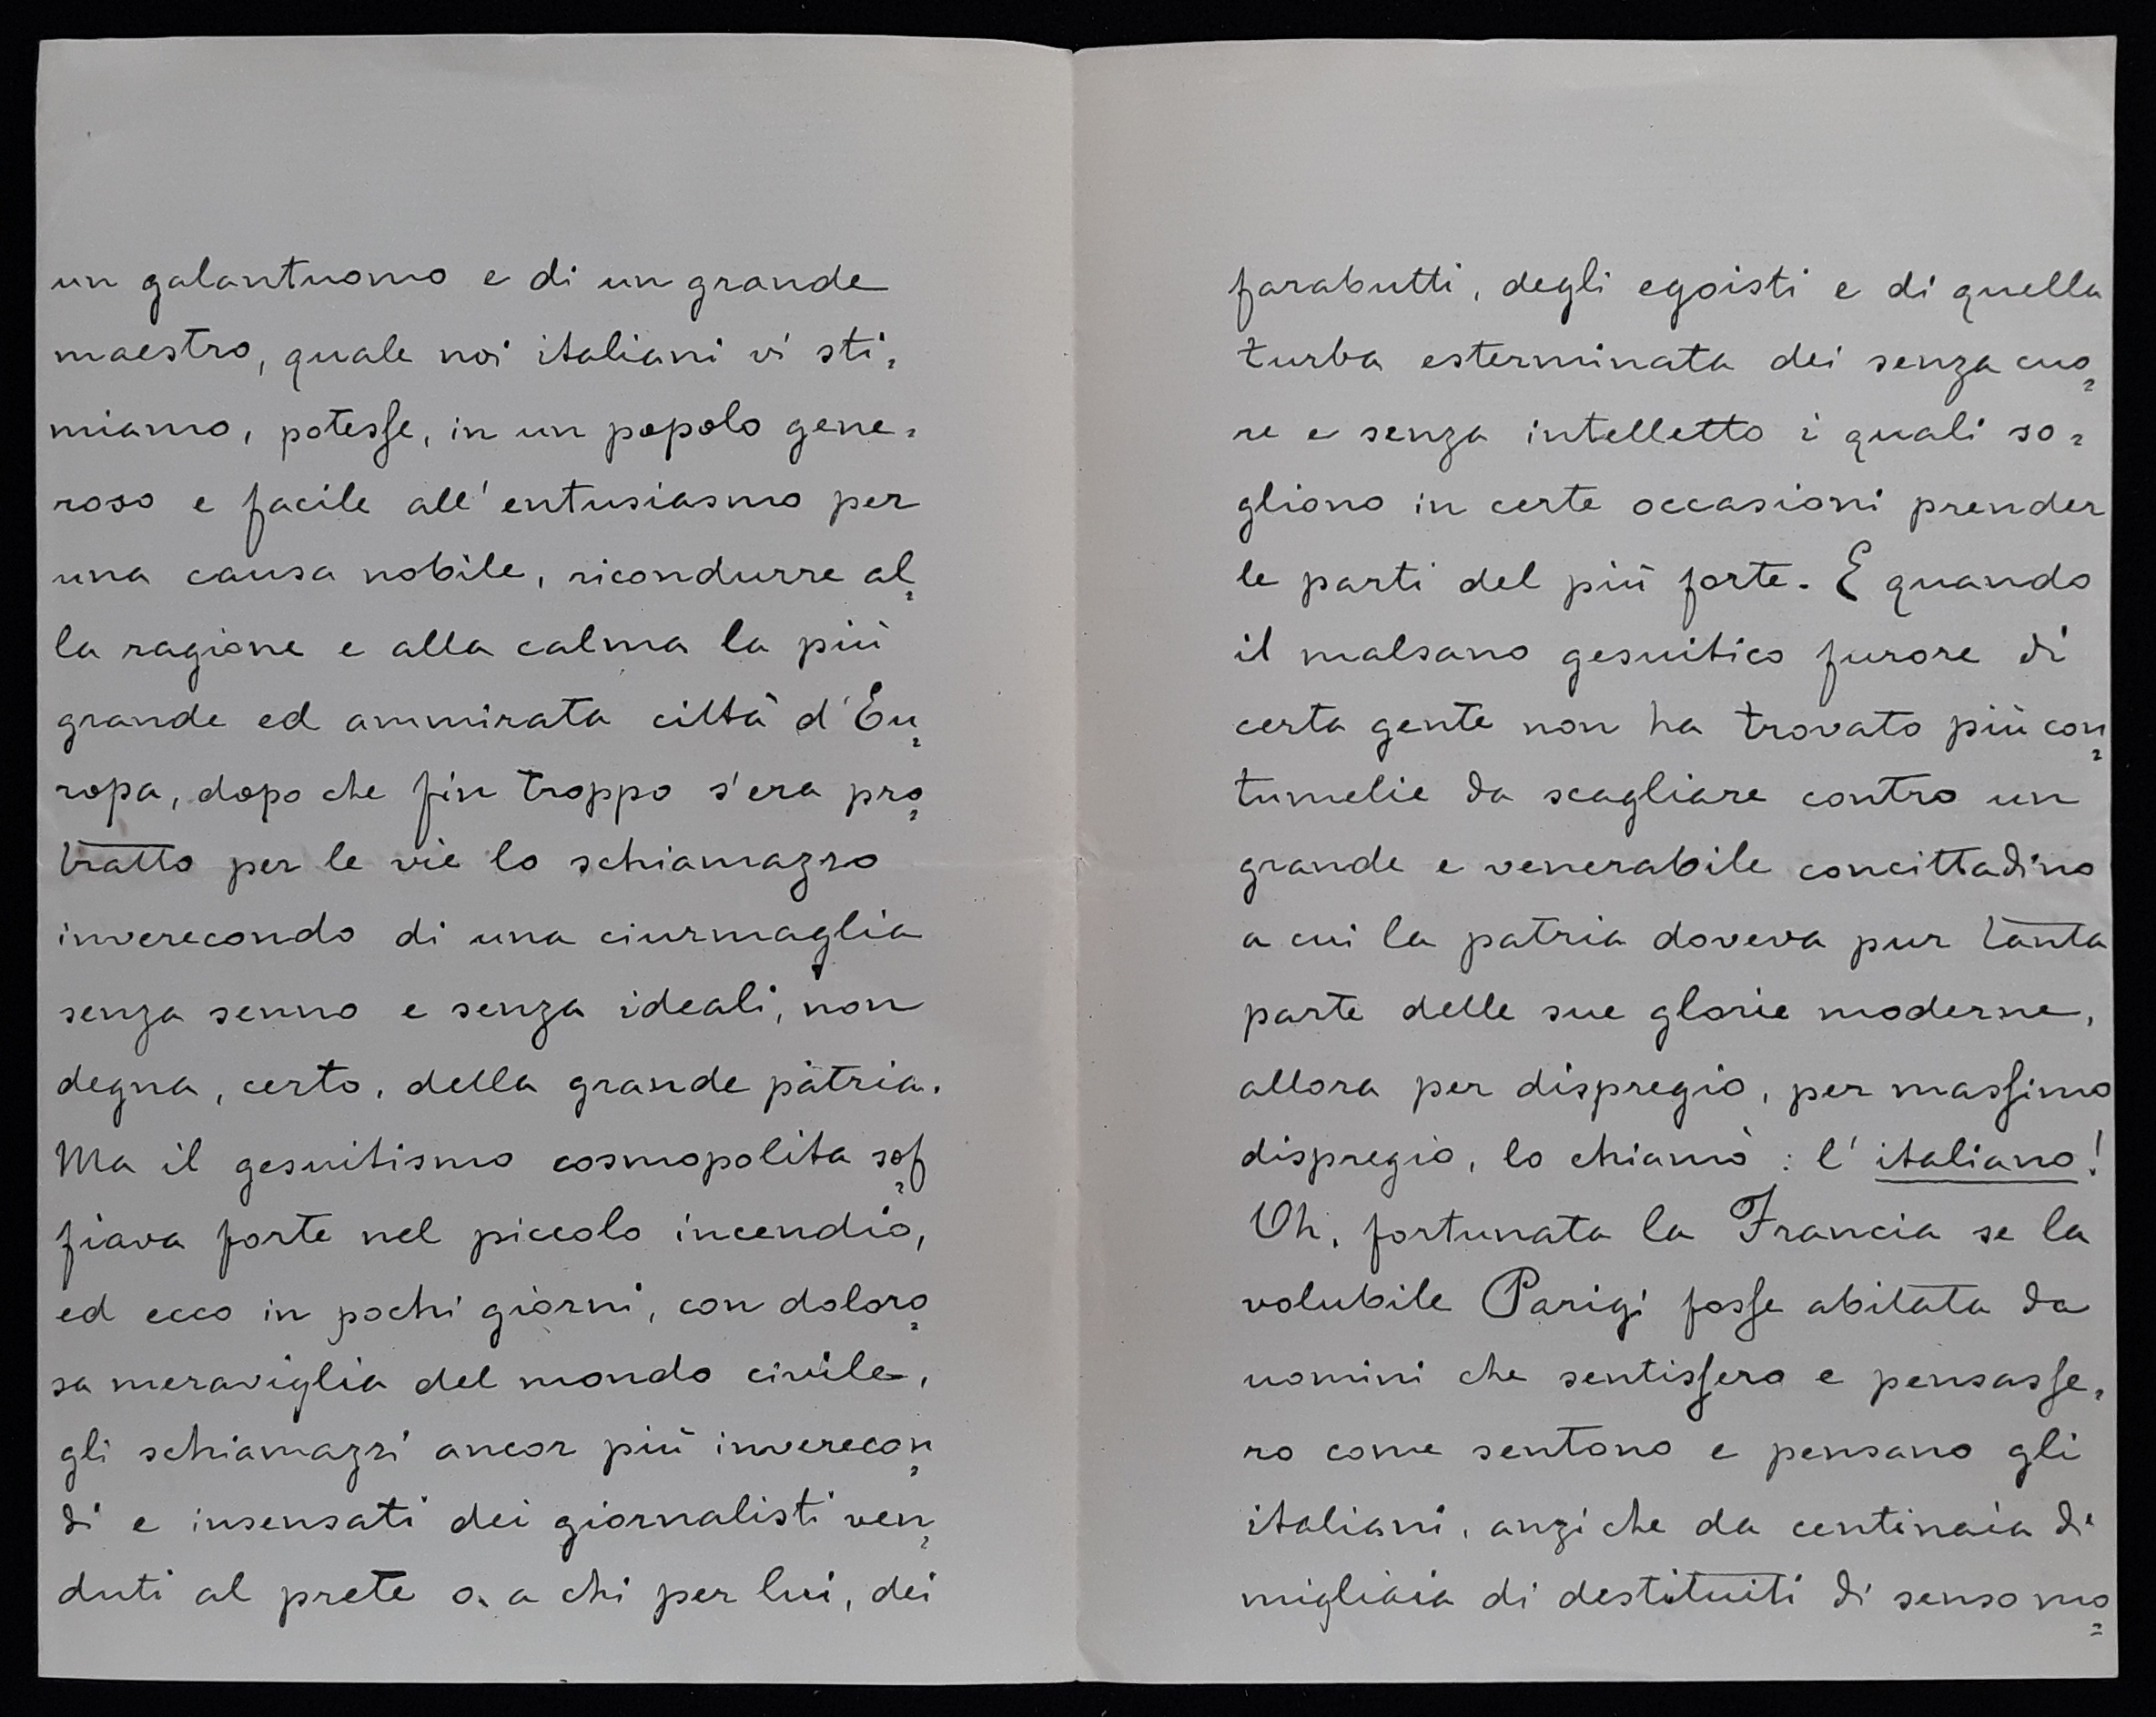 un galantuomo e di un grande
maestro, quale noi italiani vi sti=
miamo, potesse, in un popolo gene=
roso e facile all'entusiasmo per
una causa nobile, ricondurre al=
la ragione e alla calma la più
grande ed ammirata città d'Eu=
ropa, dopo che fin troppo s'era pro=
tratto per le vie lo schiamazzo
inverecondo di una ciurmaglia
senza senno e senza ideali, non
degna, certo, della grande pàtria.
Ma il gesuitismo cosmopolita sof=
fiava forte nel piccolo incendio,
ed ecco in pochi giorni, con doloro=
sa meraviglia del mondo civile,
gli schiamazzi ancor più inverecon=
di e insensati dei giornalisti ven=
duti al prete o a chi per lui, dei
farabutti, degli egoisti e di quella
turba esterminata dei senza cuo=
re e senza intelletto i quali so=
gliono in certe occasioni prender
le parti del più forte. E quando
il malsano gesuitico furore di
certa gente non ha trovato più con=
tumelie da scagliare contro un
grande e venerabile concittadino
a cui la patria doveva pur tanta
parte delle sue glorie moderne,
allora per dispregio, per massimo
dispregio, lo chiamò: l'italiano!
Oh, fortunata la Francia se la
volubile Parigi fosse abitata da
uomini che sentissero e pensasse=
ro come sentono e pensano gli
italiani, anzi che da centinaia di
migliaia di destituiti di senso mo=